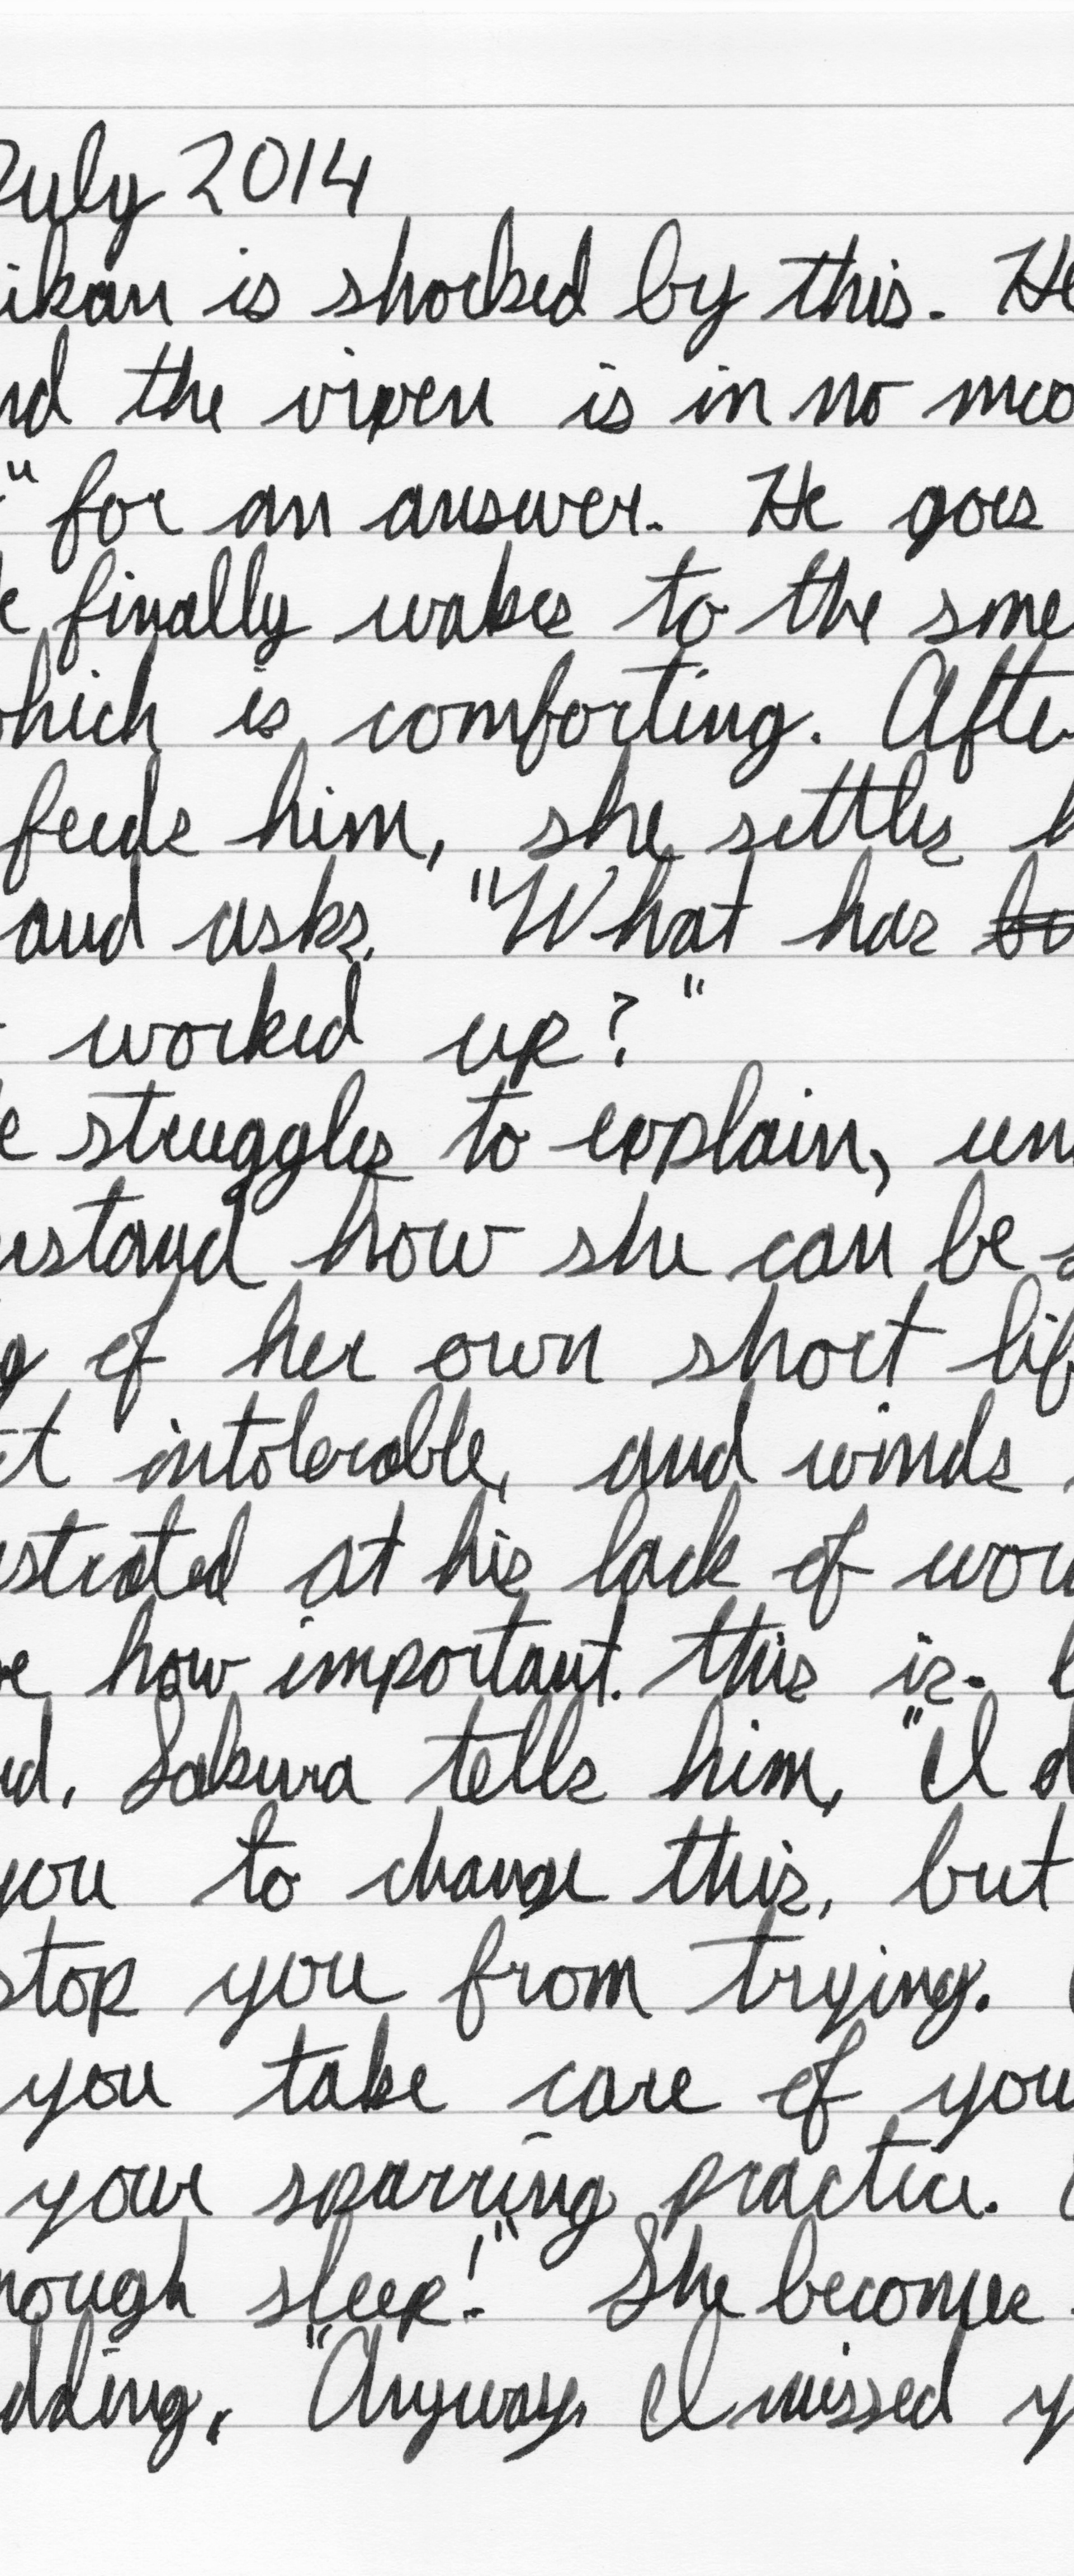 July 2014
ikan is shocked by this. He
nd the vixen is in no moo
" for an answer. He goes
e finally wakes to the sme
hich is comforting. Afte
feeds him, she settles h
and asks, "What has
worked up?"
e struggles to explain, un
rstand how she can be s
g of her own short lif
it intolerable, and winds
ustrated at his lack of wor
ve how important this is.
rd. Sakura tells him, "I d
you to change this, but
stop you from trying.
you take care of you
your sparring practice.
nough sleep!" She becomes
dding, "Anyway, I missed y